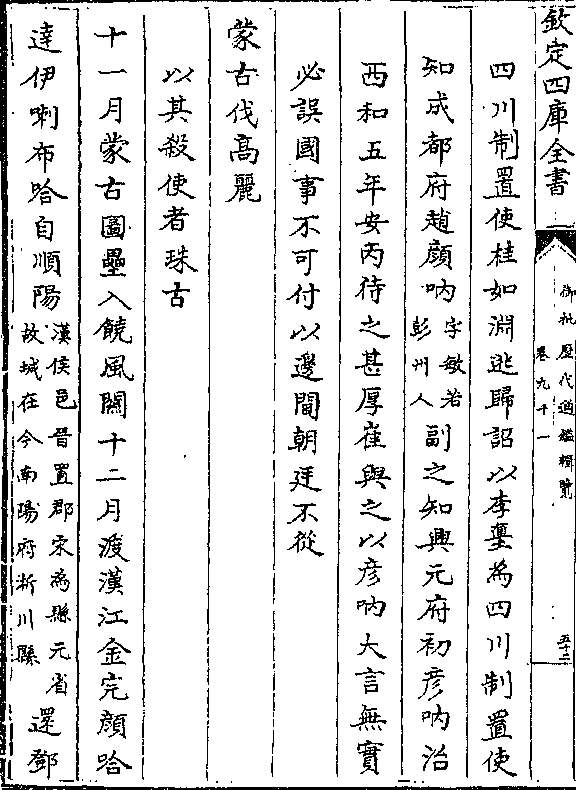 欽定四庫全書
御批歷代通鑑輯覽
卷九十一
五十二
四川制置使桂如淵逃歸詔以李𡌴為四川制置使
知成都府趙顔吶字敏若彭州人副之知興元府初彦吶治
西和五年安丙待之甚厚崔與之以彦吶大言無實
必誤國事不可付以邊閫朝廷不從
蒙古伐高麗
以其殺使者珠古
十一月蒙古圖壘入饒風關十二月渡漢江金完顔哈
達伊喇布哈自順陽漢侯邑晉置郡宋為縣元省故城在今南陽府淅川縣還鄧